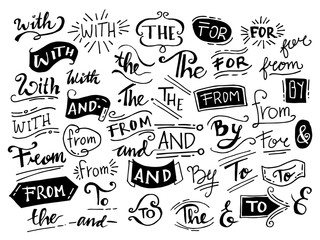 with WITH THE FOR FOR for
WITH the The FOR from
With With BY
AND The THE FROM from
WITH from FROM AND By For &
From and
from AND By To To
FROM To
the -and- TO The & TO &